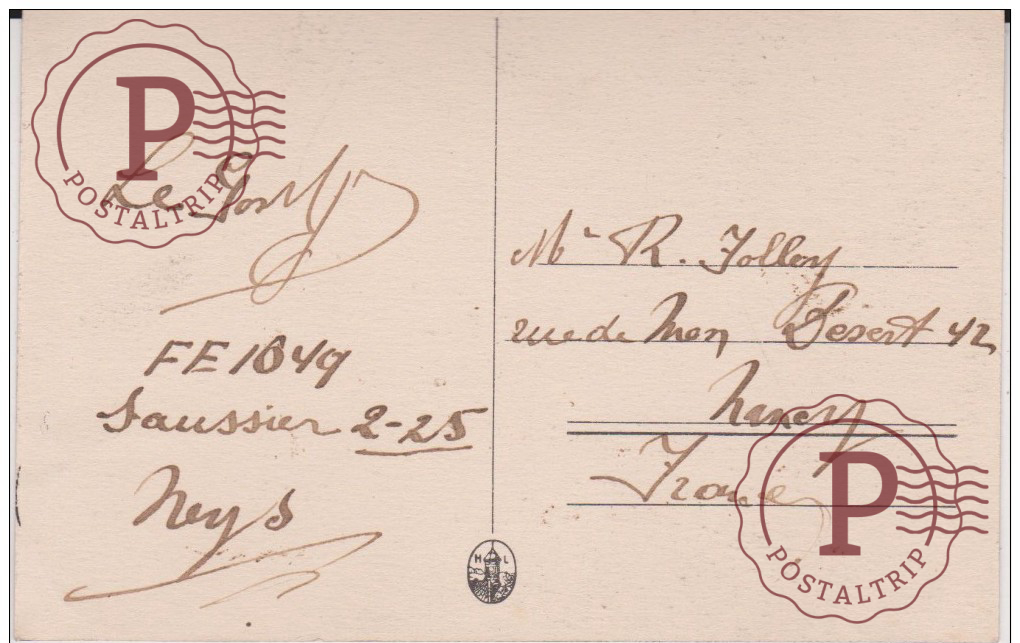 P
POSTALTRIP
Le
FE 1049
Saussier 2-25
Neys
Mr R. Jolley
rue de Mon Desert 42,
Nancy
France
H L
P
POSTALTRIP